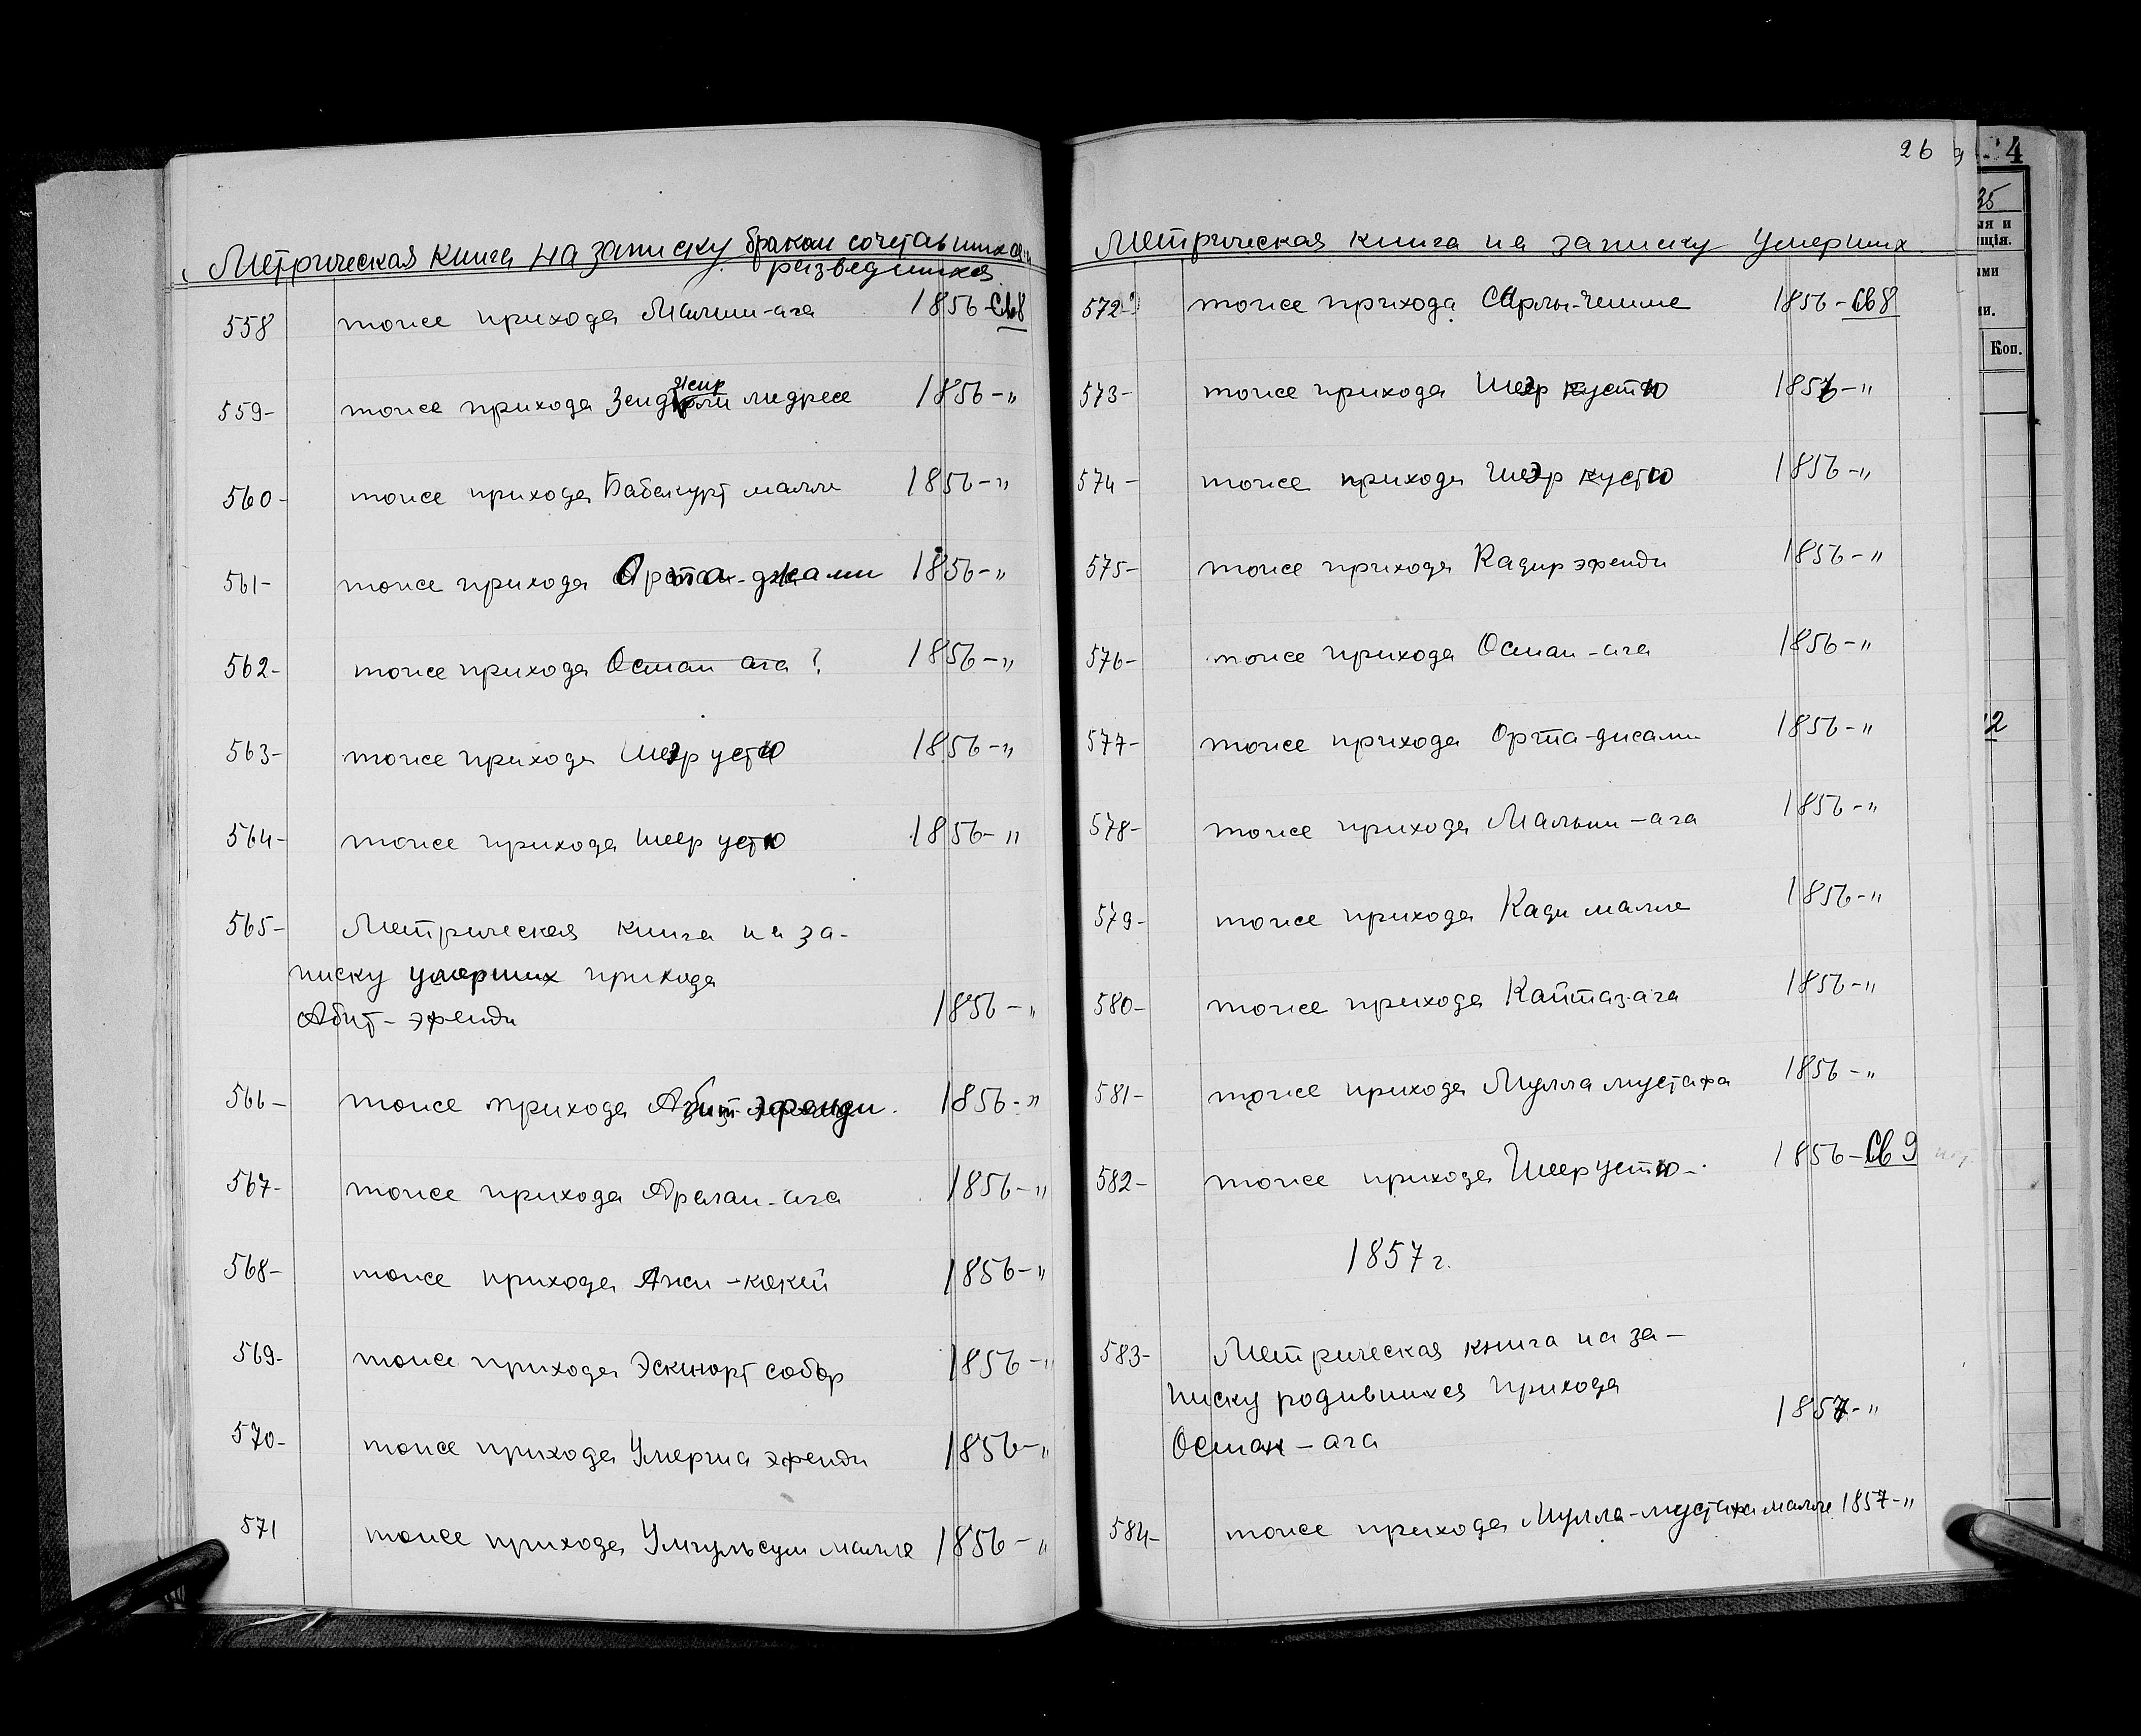 Метрическая книга на записку браком сочетавшихся и
разведшихся
558 тоже прихода Малыш-ага 1856-Св8
559- тоже прихода Зенджирли медресе 1856-"
560- тоже прихода Бабакурт малле 1856-"
561- тоже прихода Орта-джами 1856-"
562- тоже прихода Осман ага ? 1856-"
563- тоже прихода Шеэр устю 1856-"
564- тоже прихода Шеер устю 1856-"
565- Метрическая книга на за-
писку умерших прихода
Абит-эфенди 1856-"
566- тоже прихода эфенди. 1856-"
567- тоже прихода Арслан-ага 1856-"
568- тоже прихода Ажи-кокей 1856-"
569- тоже прихода Эскиюрт собор 1856-"
570- тоже прихода эфенди 1856-"
571 тоже прихода Умгульсум малле 1856-"
26
Метрическая книга на записку умерших
572- тоже прихода Сарлы-чешме 1856-Св8
573- тоже прихода Шеэр кустю 1856-"
574- тоже прихода Шеэр кустю 1856-"
575- тоже прихода Кадир эфенди 1856-"
576- тоже прихода Осман-ага 1856-"
577- тоже прихода Орта-джами 1856-"
578- тоже прихода Малыш-ага 1856-"
579- тоже прихода Кади малле 1856-"
580- тоже прихода Кайтаз-ага 1856-"
581- тоже прихода Мулла мустафа 1856-"
582- тоже прихода Шеер устю-. 1856-Св 9
1857 г.
583- Метрическая книга на за-
писку родившихся прихода
Осман-ага 1857-"
584- тоже прихода Мулла-мустафа малле 1857-"
4
35
Коп.